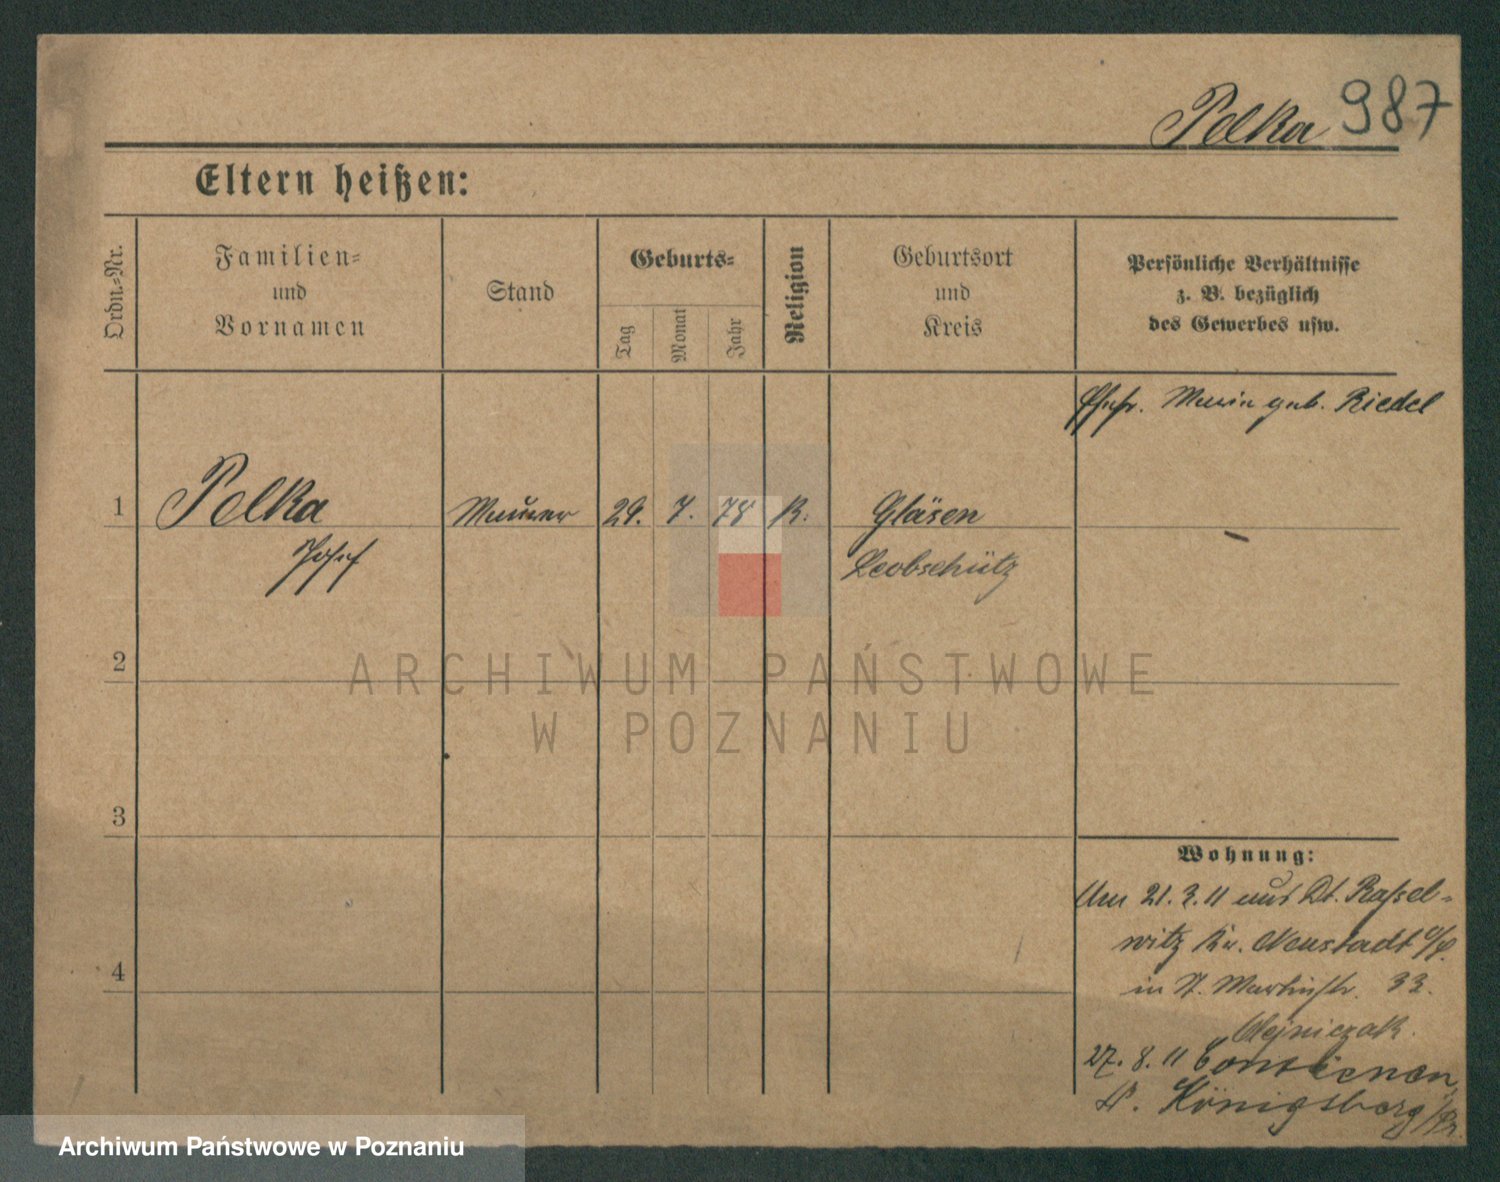 Pelka 987
Eltern heißen:
Ordn.-Nr.
Familien-
und
Vornamen
Stand
Geburts-
Tag
Monat
Jahr
Religion
Geburtsort
und
Kreis
Persönliche Verhältnisse
z. B. bezüglich
des Gewerbes usw.
Ehefr. Maria geb. Riedel
1 Pelka Maurer 29. 7. 78 K. Gläsen
Josef Leobschütz
2
3
4
Wohnung:
Um 21.3.11 aus Dt. Rasselwitz
Kr. Neustadt O/S.
in St. Martinstr. 33.
Olejniczak.
27. 8. 11 Contienen,
Königsberg/Pr.
ARCHIWUM PAŃSTWOWE
W POZNANIU
Archiwum Państwowe w Poznaniu